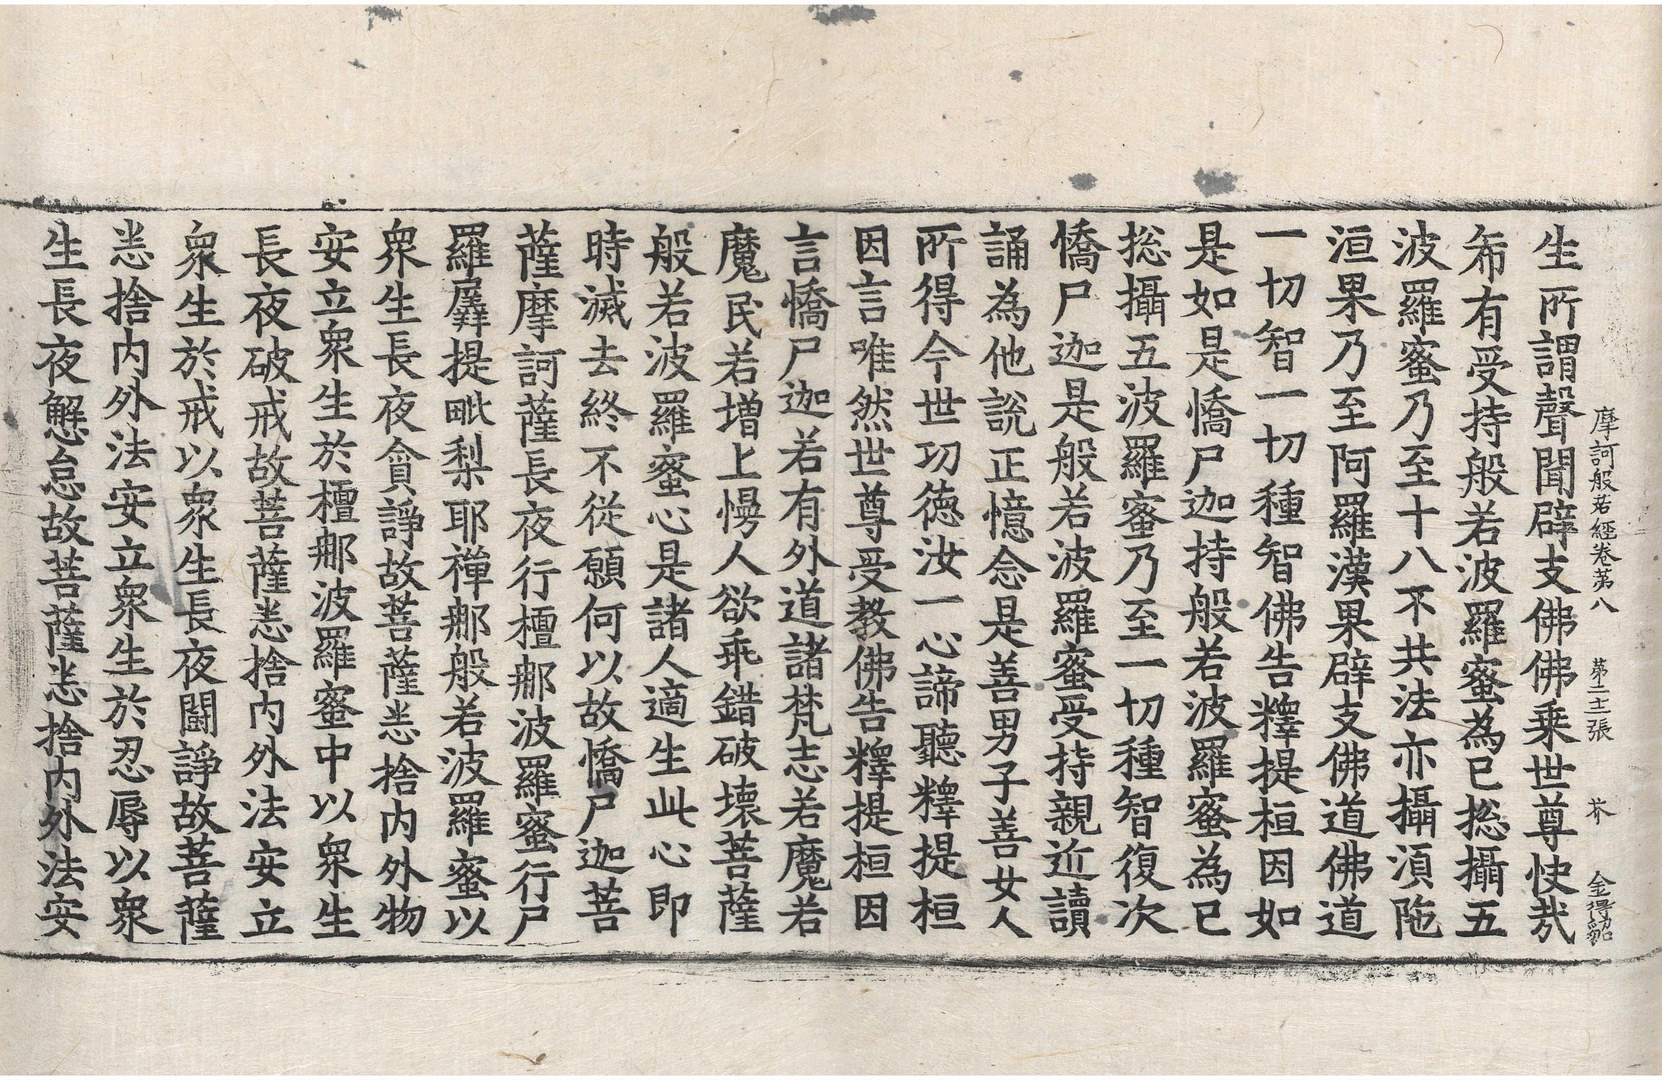 摩訶般若經卷苐八 苐二十二張 芥 金得䂮
生所謂聲聞辟支佛佛乗世尊快㢤
希有受持般若波羅蜜為已揔攝五
波羅蜜乃至十八不共法亦攝湏陁
洹果乃至阿羅漢果辟支佛道佛道
一切智一切種智佛告釋提桓因如
是如是憍尸迦持般若波羅蜜為已
揔攝五波羅蜜乃至一切種智復次
憍尸迦是般若波羅蜜受持親近讀
誦為他說正憶念是善男子善女人
所得今世功德汝一心諦聽釋提桓
因言唯然世尊受教佛告釋提桓因
言憍尸迦若有外道諸梵志若魔若
魔民若増上慢人欲乖錯破壞菩薩
般若波羅蜜心是諸人適生此心即
時滅去終不從願何以故憍尸迦菩
薩摩訶薩長夜行檀那波羅蜜行尸
羅羼提毗梨耶禪那般若波羅蜜以
衆生長夜貪諍故菩薩悉捨内外物
安立衆生於檀那波羅蜜中以衆生
長夜破戒故菩薩悉捨内外法安立
衆生於戒以衆生長夜闘諍故菩薩
悉捨内外法安立衆生於忍辱以衆
生長夜懈怠故菩薩悉捨内外法安